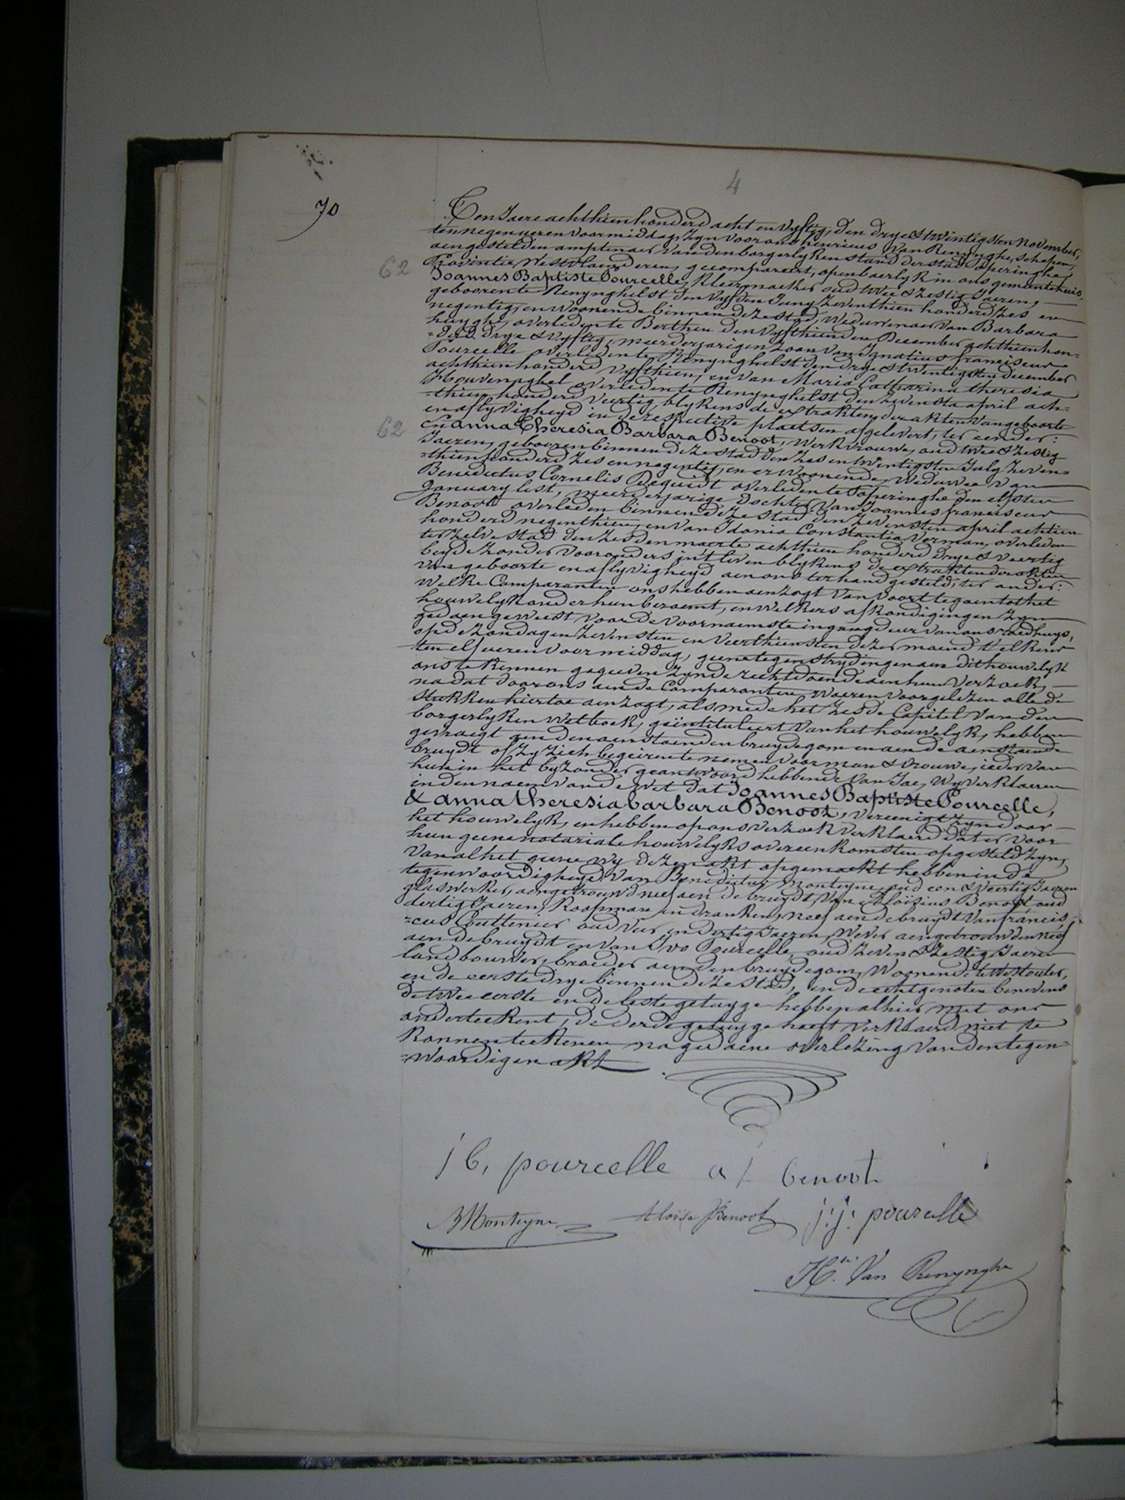 4
70
Ten Jaere achthien honderd acht en vyftig, den drye & twintigsten November,
ten negen ueren voormiddag, zyn voor ons henricus Van Renynghe, schepen,
aengestelden amptenaer van den borgerlyken stand der stad Poperinghe,
62
Provintie Westvlaenderen, gecompareert, openbaerlyk in ons gemeentehuis,
Joannes Baptiste Pourcelle, Kleermaeker, oud twee & zestig Jaeren,
geboren te Renynghelst den vyfden Juny zeventhien honderd zes en
negentig, en woonende binnen deze stad, Weduwenaer van Barbara
huyghe, overleden te Berthen den vyfthienden December achthien hon-
derd drye & vyftig, meerderjarigen zoon van Ignatius franciscus
Pourcelle overleden te Renynghelst den drye & twintigsten december
achthien honderd vyfthien, en van Maria Catharina theresia
Houvenaghel overleden te Renynghelst den zevensten april ach-
thien honderd veertig, blykens de extrakten der akten van geboorte
en aflyvigheyd in de respective plaetsen afgelevert, ter eender:
62
en Anna Theresia Barbara Benoot, Werkvrouwe, oud twee & zestig
Jaeren, geboren binnen deze stad den zes en twintigsten July zeven-
thien honderd zes en negentig, en er woonende, Weduwe van
Benedictus Cornelis Dequidt overleden te Poperinghe den elfsten
January lest, meerderjarige dochter van Joannes franciscus
Benoot overleden binnen deze stad den zevensten april achtien
honderd negenthien, en van Isania Constantia Verman, overleden
ter zelve stad den zesden maerte achthien honderd drye & veertig
beyde zonder voorouders int leven blykens de extrakten der akten
van geboorte en aflyvigheyd aen ons ter hand gesteld, ter ander:
Welke Comparanten ons hebben aenzogt van voort te gaen tot het
houwelyk onder hun beraemt, en welkers afkondigingen zyn
gedaen geweest voor de voornaemste ingangdeur van ons raedhuys,
op de zondagen zevensten en veerthiensten dezer maend t'elkens
ten elf ueren voormiddag, geene tegenstrydingen aen dit houwelyk
ons te kennen gegeven zynde, rechtdoende aen hun verzoek,
na dat door ons aen de Comparanten waeren voorgelezen alle de
stukken hiertoe aenzogt, als mede het zesde Capitel van den
borgerlyken Wetboek, geintituleert van het houwelyk, hebben
gevraegt aen den aenstaenden bruydegom en aen de aenstaende
bruydt of zy zich begeiren te nemen voor man & vrouwe, ieder van
hun in het byzonder geantwoord hebbende van Jae, Wy verklaeren
in den naem van de wet dat Joannes Baptiste Pourcelle,
& Anna theresia barbara Benoot, vereenigt zyn door
het houwelyk, en hebben op ons verzoek verklaerd dat er voor
hun geene notariale houwelyks overeenkomsten opgesteld zyn,
van al het geene wy dezen akt opgemaekt hebben in de
tegenwoordigheyd van Benedictus Monteyne, oud een & veertig Jaeren
glaswerker, aengetrouwd neef aen de bruydt, van Aloisius Benoot oud
dertig Jaeren, Koopman in dranken, neef aen de bruydt, van francis-
cus Buttenier oud vier en dertig Jaeren, Wever aengetrouwden neef
aen de bruydt en van Ivo Pourcelle, oud zeven & zestig Jaeren
landbouwer, broeder aen den bruydegom, Wonende te Westouter,
en de eerste drye binnen deze stad, en de echtgenoten benevens
de twee eerste en de leste getuyge hebben alhier met ons
onderteekent, de derde getuyge heeft verklaerd niet te
konnen teekenen na gedaene overlezing van den tegen-
woordigen akt
j b, pourcelle a t benoot
B Monteyne Aloise Benoot j: j: pourcelle
Hri. Van Renynghe